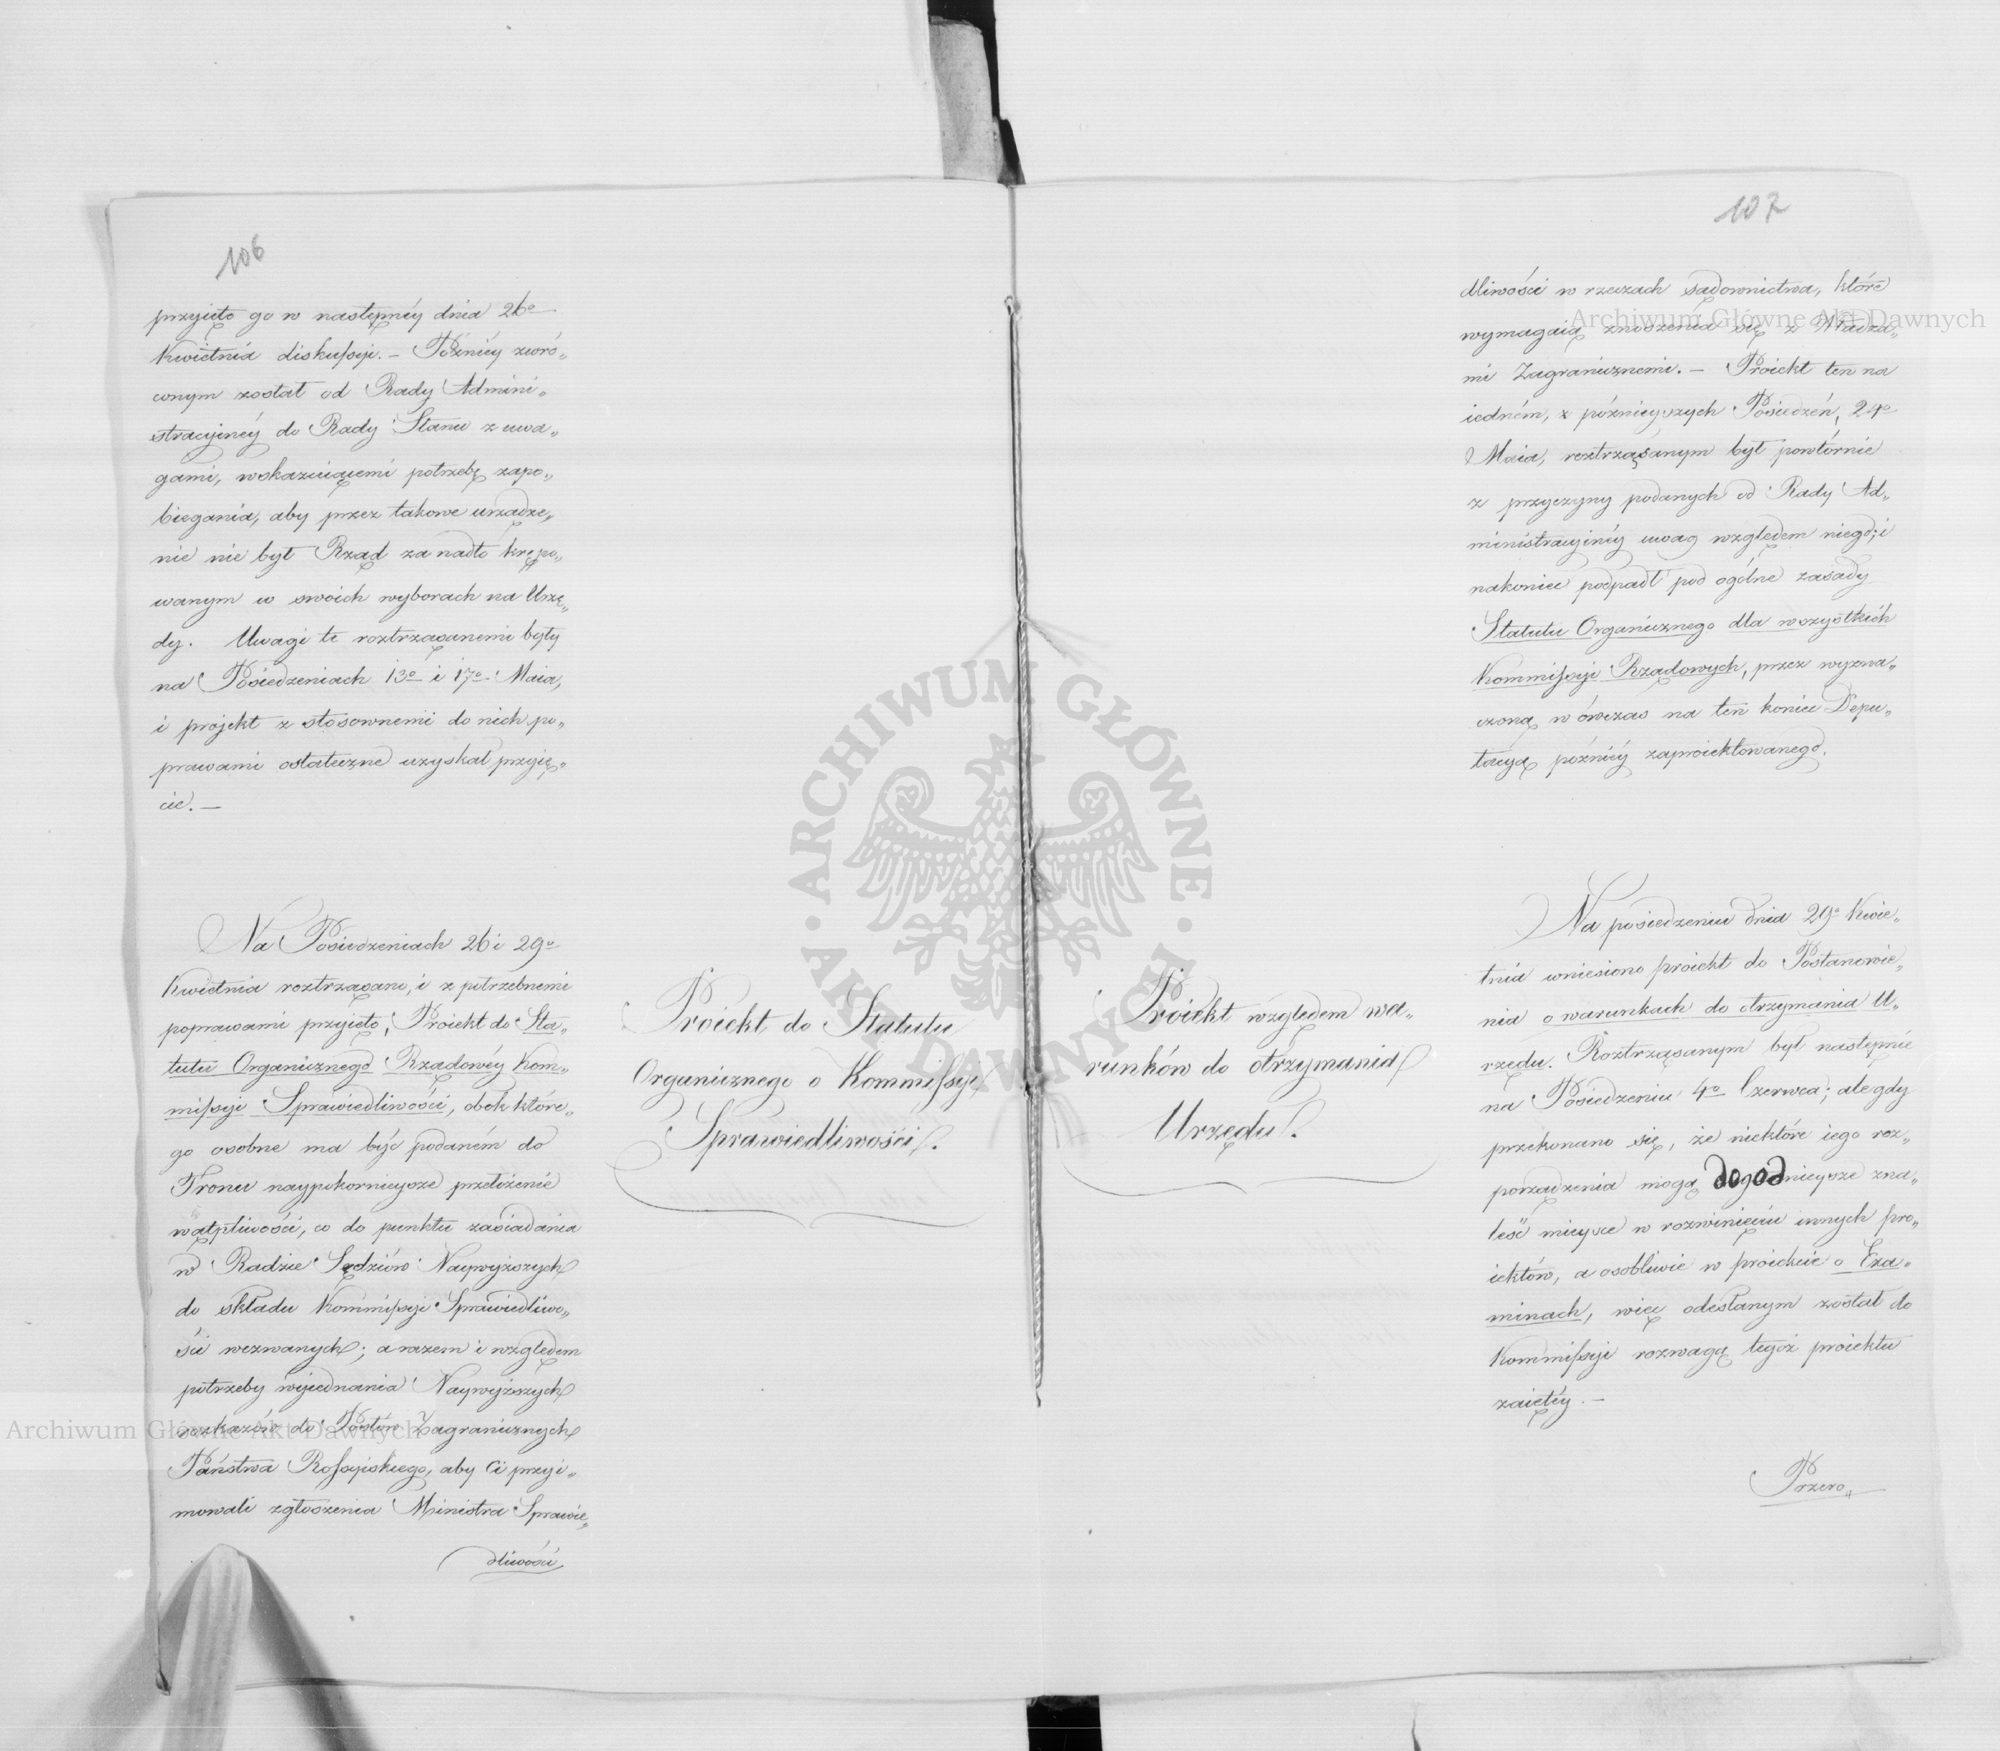 106
przyięto go w następnéy dnia 26º
Kwietnia diskussyi. — Póżniéy zwró„
conym został od Rady Admini„
stracyinéy do Rady Stanu z uwa„
gami, wskazuiącemi potrzebę zapo„
biegania, aby przez takowe urządze„
nie nie był Rząd za nadto krępo„
wanym w swoich wyborach na Urzę„
dy. Uwagi te roztrząsanemi były
na Posiedzeniach 13º i 17º Maia,
i projekt z stosownemi do nich po„
prawami ostateczne uzyskał przyię„
cie. —
Na Posiedzeniach 26 i 29º
Kwietnia roztrząsano, i z potrzebnemi
poprawami przyięto, Proiekt do Sta„
tutu Organicznego Rządowéy Kom„
missyi Sprawiedliwości, obok które„
go osobne ma być podaném do
Tronu naypokornieysze przełożenie
wątpliwości, co do punktu zasiadania
w Radzie Sędziów Naywyższych
do składu Kommissyi Sprawiedliwo„
ści wezwanych; a razem i względem
potrzeby wyiednania Naywyższych
rozkazów do Posłów Zagranicznych
Państwa Rossyiskiego, aby Ci przyi„
mowali zgłoszenia Ministra Sprawie„
dliwości
Proiekt do Statutu
Organicznego o Kommissyi
Sprawiedliwości.
107
dliwości w rzeczach sądownictwa, które
wymagaią znoszenia się z Władza„
mi Zagranicznemi. — Proiekt ten na
iedném, z póżnieyszych Posiedzeń, 24º
Maia, roztrząsanym był powtórnie
z przyczyny podanych od Rady Ad„
ministracyinéy uwag względem niego; i
nakoniec podpadł pod ogólne zasady
Statutu Organicznego dla wszystkich
Kommissyi Rządowych, przez wyzna„
czoną wówczas na ten koniec Depu„
tacyą póżniéy zaproiektowanego.
Na posiedzeniu dnia 29º Kwie„
tnia wniesiono proiekt do Postanowie„
nia o warunkach do otrzymania U„
rzędu. Roztrząsanym był następnie
na Posiedzeniu 4º Czerwca; ale gdy
przekonano się, że niektóre iego roz„
porządzenia mogą dogodnieysze zna„
leść mieysce w rozwinięciu innych pro„
iektów, a osobliwie w proiekcie o Exa„
minach, więc odesłanym został do
Kommissyi rozwagą tegoż proiektu
zaiętéy. —
Przero„
Proiekt względem wa„
runków do otrzymania
Urzędu.
ARCHIWUM GŁÓWNE · AKT DAWNYCH ·
Archiwum Główne Akt Dawnych
Archiwum Główne Akt Dawnych